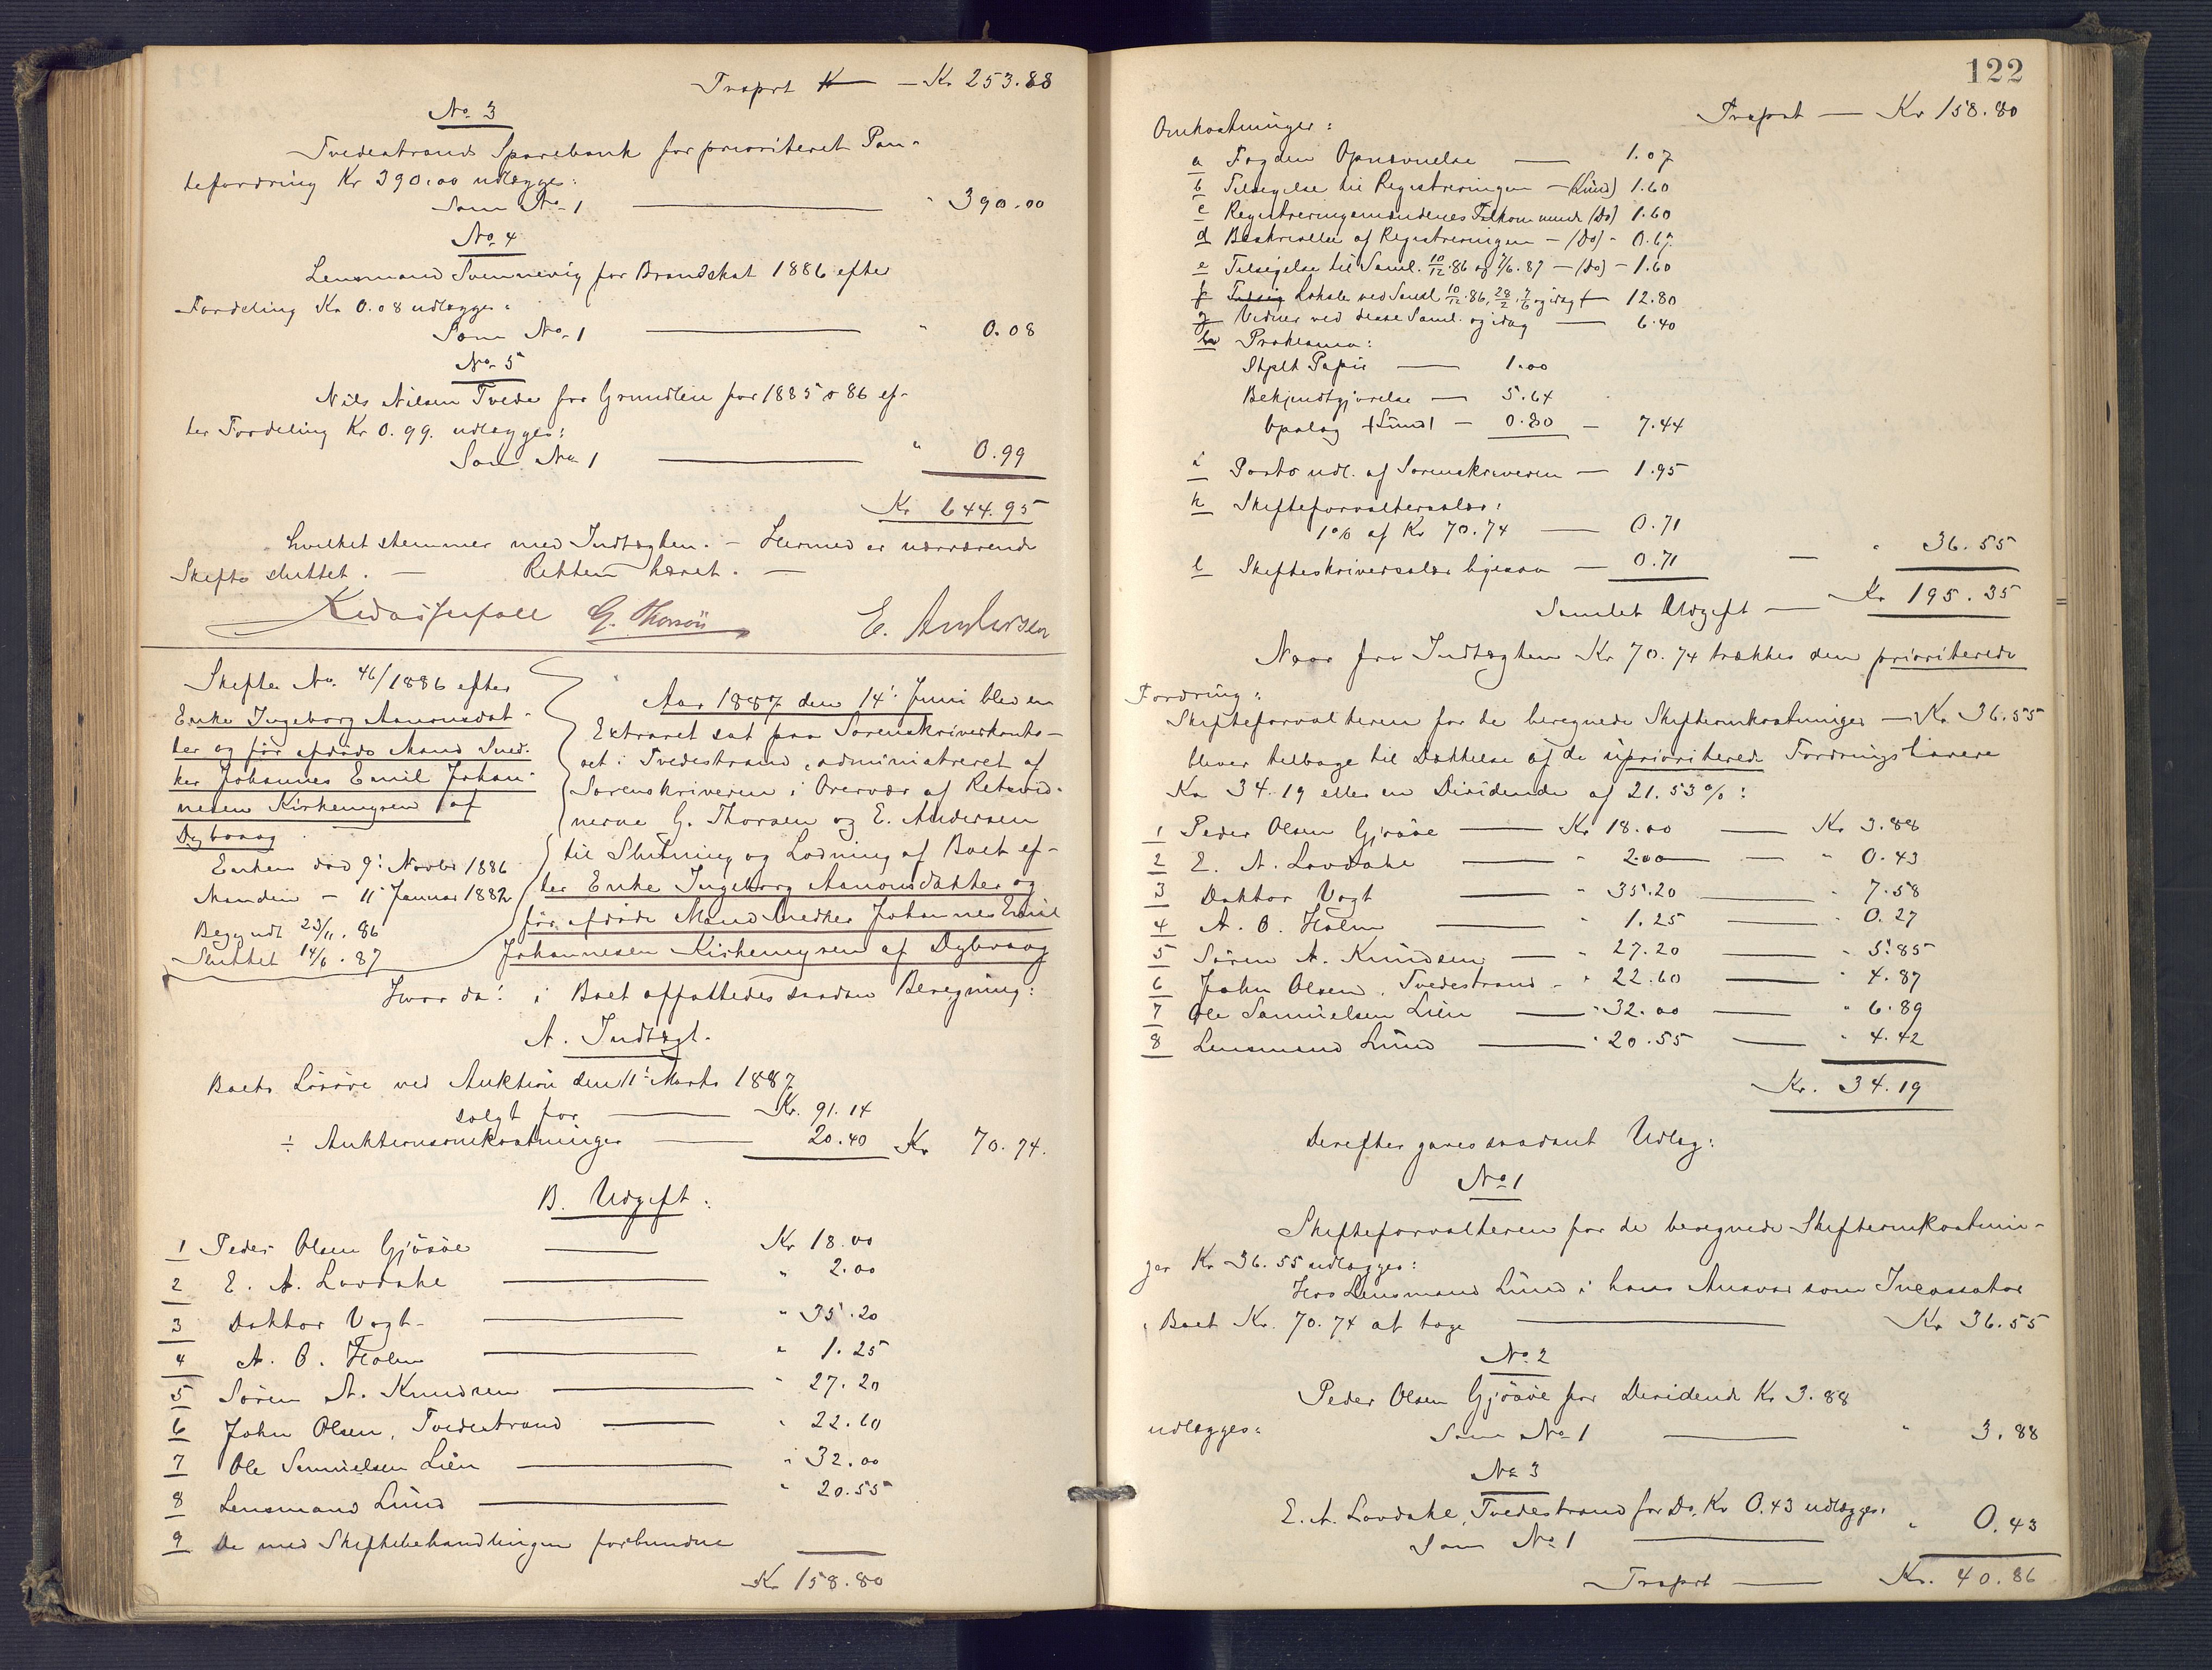 Trsprt K — Kr 253.88
No 3
Tvedestrands Sparebank for prioriteret Pan-
tefordring Kr 390.00 udlægges:
Som No 1 — " 390.00
No 4
Lensmand Svennevig for Brandskat 1886 efter
Fordeling Kr 0.08 udlægges:
Som No 1 — " 0.08
No 5
Nils Nilsen Tvede for Grundleie for 1885 & 86 ef-
ter Fordeling Kr 0.99. udlægges:
Som No 1 — " 0.99
Kr 644.95
hvilket stemmer med Indtægten. — Hermed er nærværende
Skifte sluttet. — Retten hævet. —
G. Thorsen E. Andersen
Skifte No. 46/1886 efter
Enke Ingeborg Aanonsdat-
ter og før afdøde Mand Sned-
ker Johannes Emil Johan-
nesen Kirkemyren af
Dybvaag.
Enken død 9' Novbr 1886
Manden — 11' Januar 1882
Begyndt 23/11. 86
Sluttet 14/6. 87
Aar 1887 den 14' Juni blev en
Extraret sat paa Sorenskriverkonto-
ret i Tvedestrand, administreret af
Sorenskriveren i Overvær af Retsvid-
nerne G. Thorsen og E. Andersen
til Slutning og Lodning af Boet ef-
ter Enke Ingeborg Aanonsdatter og
før afdøde Mand Snedker Johannes Emil
Johannesen Kirkemyren af Dybvaag
Hvor da! i Boet affattedes saadan Beregning:
A. Indtægt.
Boets Løsøre ved Auktion den 11' Marts 1887
solgt for — Kr. 91.14
÷ Auktionsomkostninger — 20.40 Kr 70.74.
B. Udgift:
1 Peder Olsen Gjøsøe — Kr 18.00
2 E. A. Lovdahe — " 2.00
3 Doktor Vogt — " 35.20
4 A. O. Holm — " 1.25
5 Søren A. Knudsen — " 27.20
6 John Olsen, Tvedestrand — " 22.60
7 Ole Samuelsen Lien — " 32.00
8 Lensmand Lund — " 20.55
9 De med Skiftebehandlingen forbundne
Kr 158.80
122
Trsprt — Kr 158.80
Omkostninger:
a Fogdens Opnævnelse — 1.07
b Tilsigelse til Registreringen — (Lund) 1.60
c Registreringsmændenes Tilkommende (Do) 1.60
d Beskrivelse af Registreringen — (Do) - 0.67
e Tilsigelse til Saml. 10/12.86 og 7/6.87 — (Do) — 1.60
f Lokale ved Saml 10/12.86, 28/2, 7/6 og idag — 12.80
g Vidner ved disse Saml. og idag — 6.40
h Proklama:
Stplt Papir — 1.00
Bekjendtgjørelse — 5.64
Opslag (Lund) — 0.80 — 7.44
i Porto udl. af Sorenskriveren — 1.95
k Skifteforvaltersalær:
1% af Kr 70.74 — 0.71
l Skifteskriversalær ligesaa — 0.71 — " 36.55
Samlet Udgift — Kr 195.35
Naar fra Indtægten Kr 70.74 trækkes den prioriterede
Fordring:
Skifteforvalteren for de beregnede Skifteomkostninger — Kr 36.55
bliver tilbage til Dækkelse af de uprioriterede Fordringshavere
Kr 34.19 eller en Dividende af 21.53%:
1 Peder Olsen Gjøsøe — Kr 18.00 — Kr 3.88
2 E. A. Lovdahe — " 2.00 — " 0.43
3 Doktor Vogt — " 35.20 — " 7.58
4 A. O. Holm — " 1.25 — " 0.27
5 Søren A. Knudsen — " 27.20 — " 5.85
6 John Olsen, Tvedestrand - " 22.60 — " 4.87
7 Ole Samuelsen Lien — " 32.00 — " 6.89
8 Lensmand Lund — " 20.55 — " 4.42
Kr. 34.19
Derefter gjøres saadant Udlæg:
No 1
Skifteforvalteren for de beregnede Skifteomkostnin-
ger Kr 36.55 udlægges:
Hos Lensmand Lund i hans Ansvar som Incassator
i Boet Kr. 70.74 at tage — Kr 36.55
No 2
Peder Olsen Gjøsøe for Dividende Kr 3.88
udlægges:
Som No 1 — " 3.88
No 3
E. A. Lovdahe, Tvedestrand for Do. Kr 0.43 udlægges:
Som No 1 — " 0.43
Trsprt — Kr. 40.86